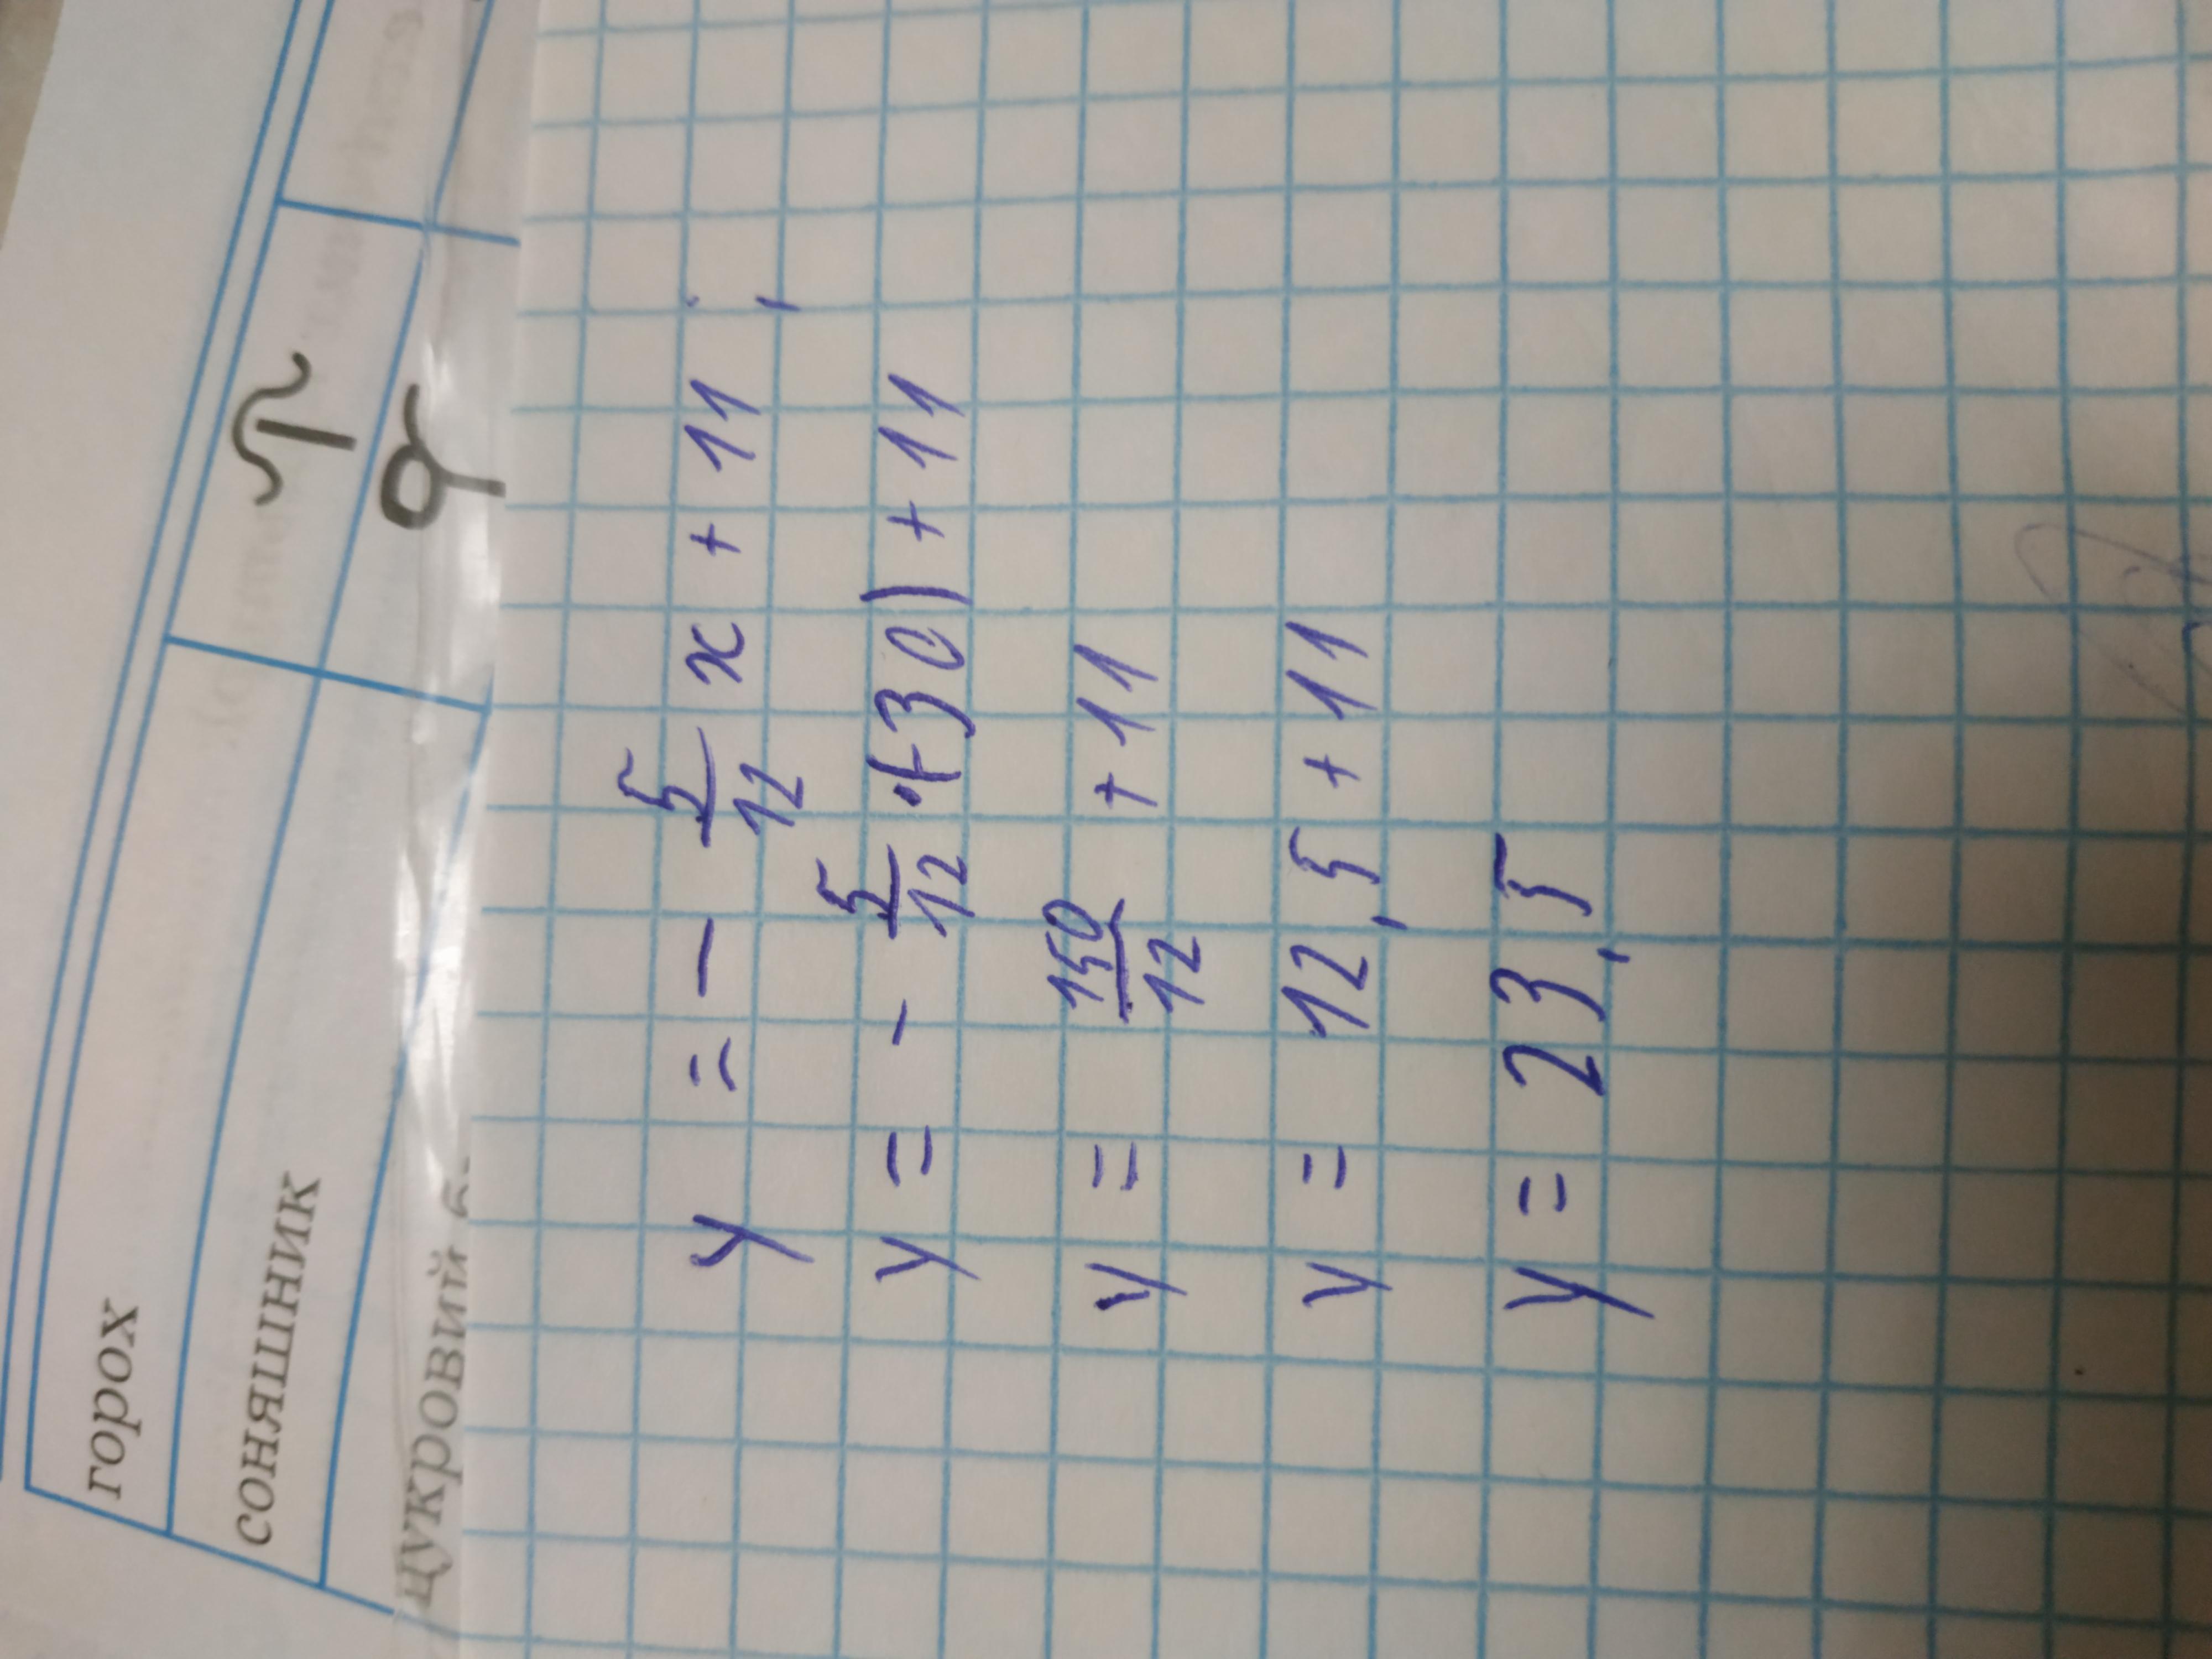 горох
соняшник
цукровий
y = - 5/12 x + 11;
y = - 5/12 · (-30) + 11
y = 150/12 + 11
y = 12,5 + 11
y = 23,5